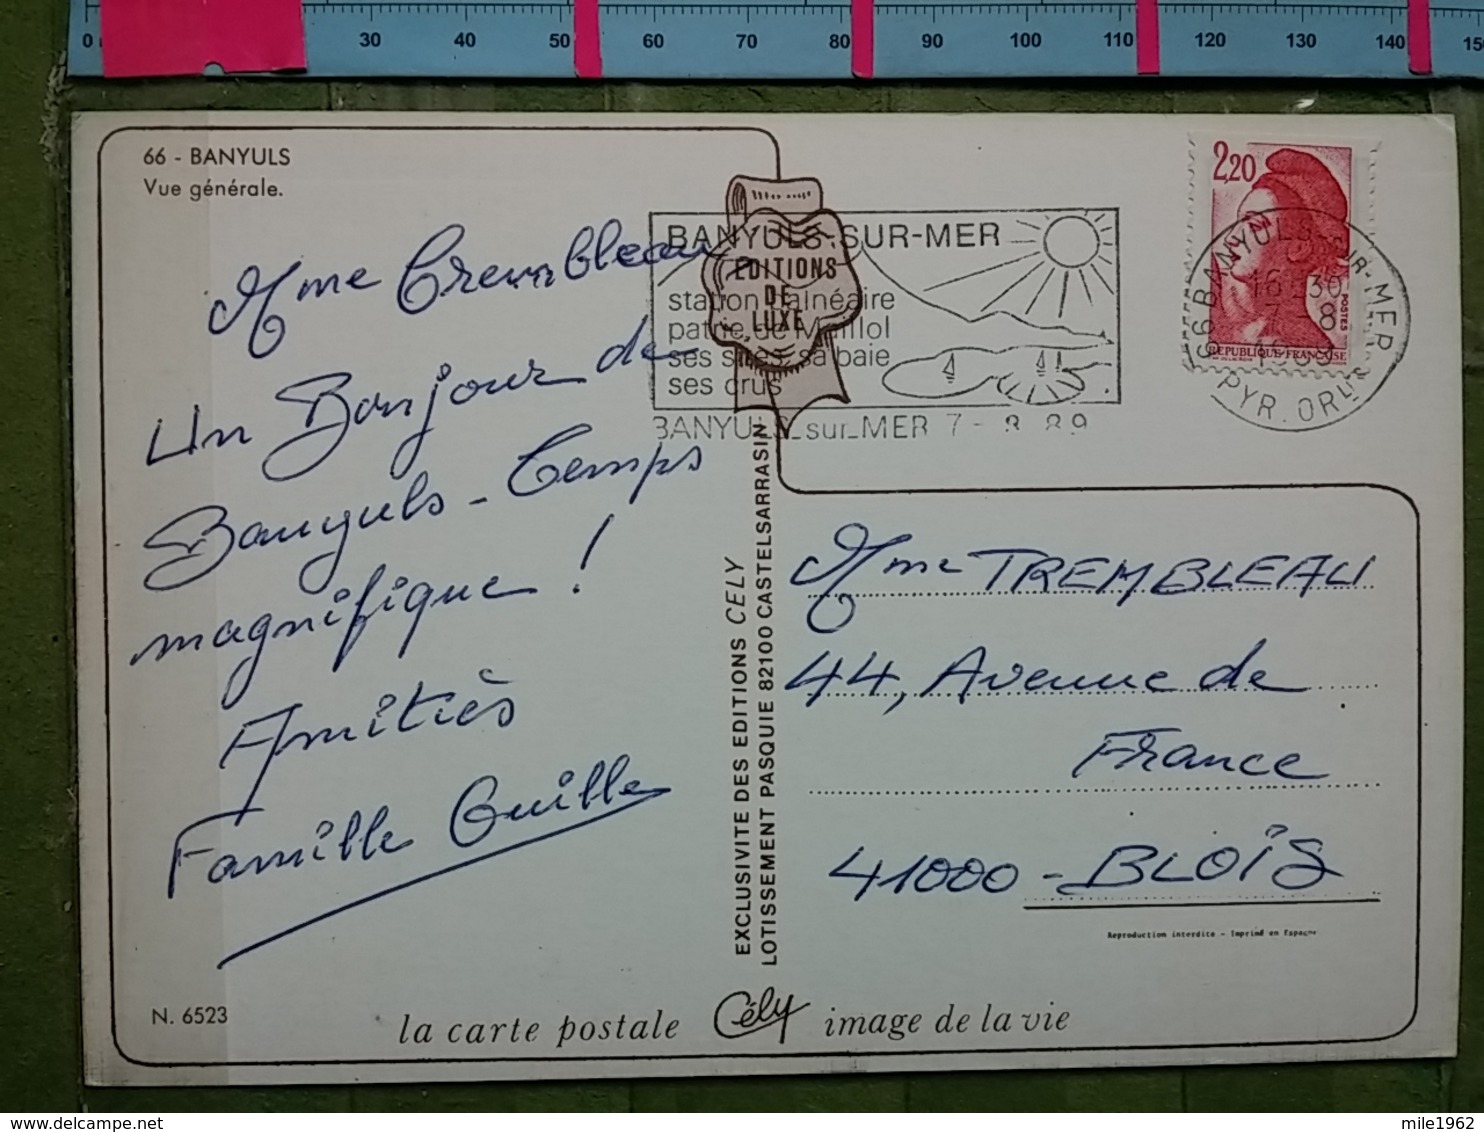 0 30 40 50 60 70 80 90 100 110 120 130 140 150
66 - BANYULS
Vue générale.
Mme Trembleau
Un Bonjour de
Banyuls - Temps
magnifique !
Amitiès
Famille Guille
N. 6523
EDITIONS
DE
LUXE
BANYULS-SUR-MER
station balnéaire
patrie de Maillol
ses sites, sa baie
ses crus
BANYULS sur MER 7 - 8 89
2,20
POSTES
REPUBLIQUE FRANÇAISE
66 BANYULS-SUR-MER
16 30
7 8
1989
PYR. ORLES
EXCLUSIVITE DES EDITIONS CELY
LOTISSEMENT PASQUIE 82100 CASTELSARRASIN
Mme TREMBLEAU
44, Avenue de
France
41000 - BLOIS
Reproduction interdite - Imprimé en Espagne
la carte postale Cély image de la vie
mile1962